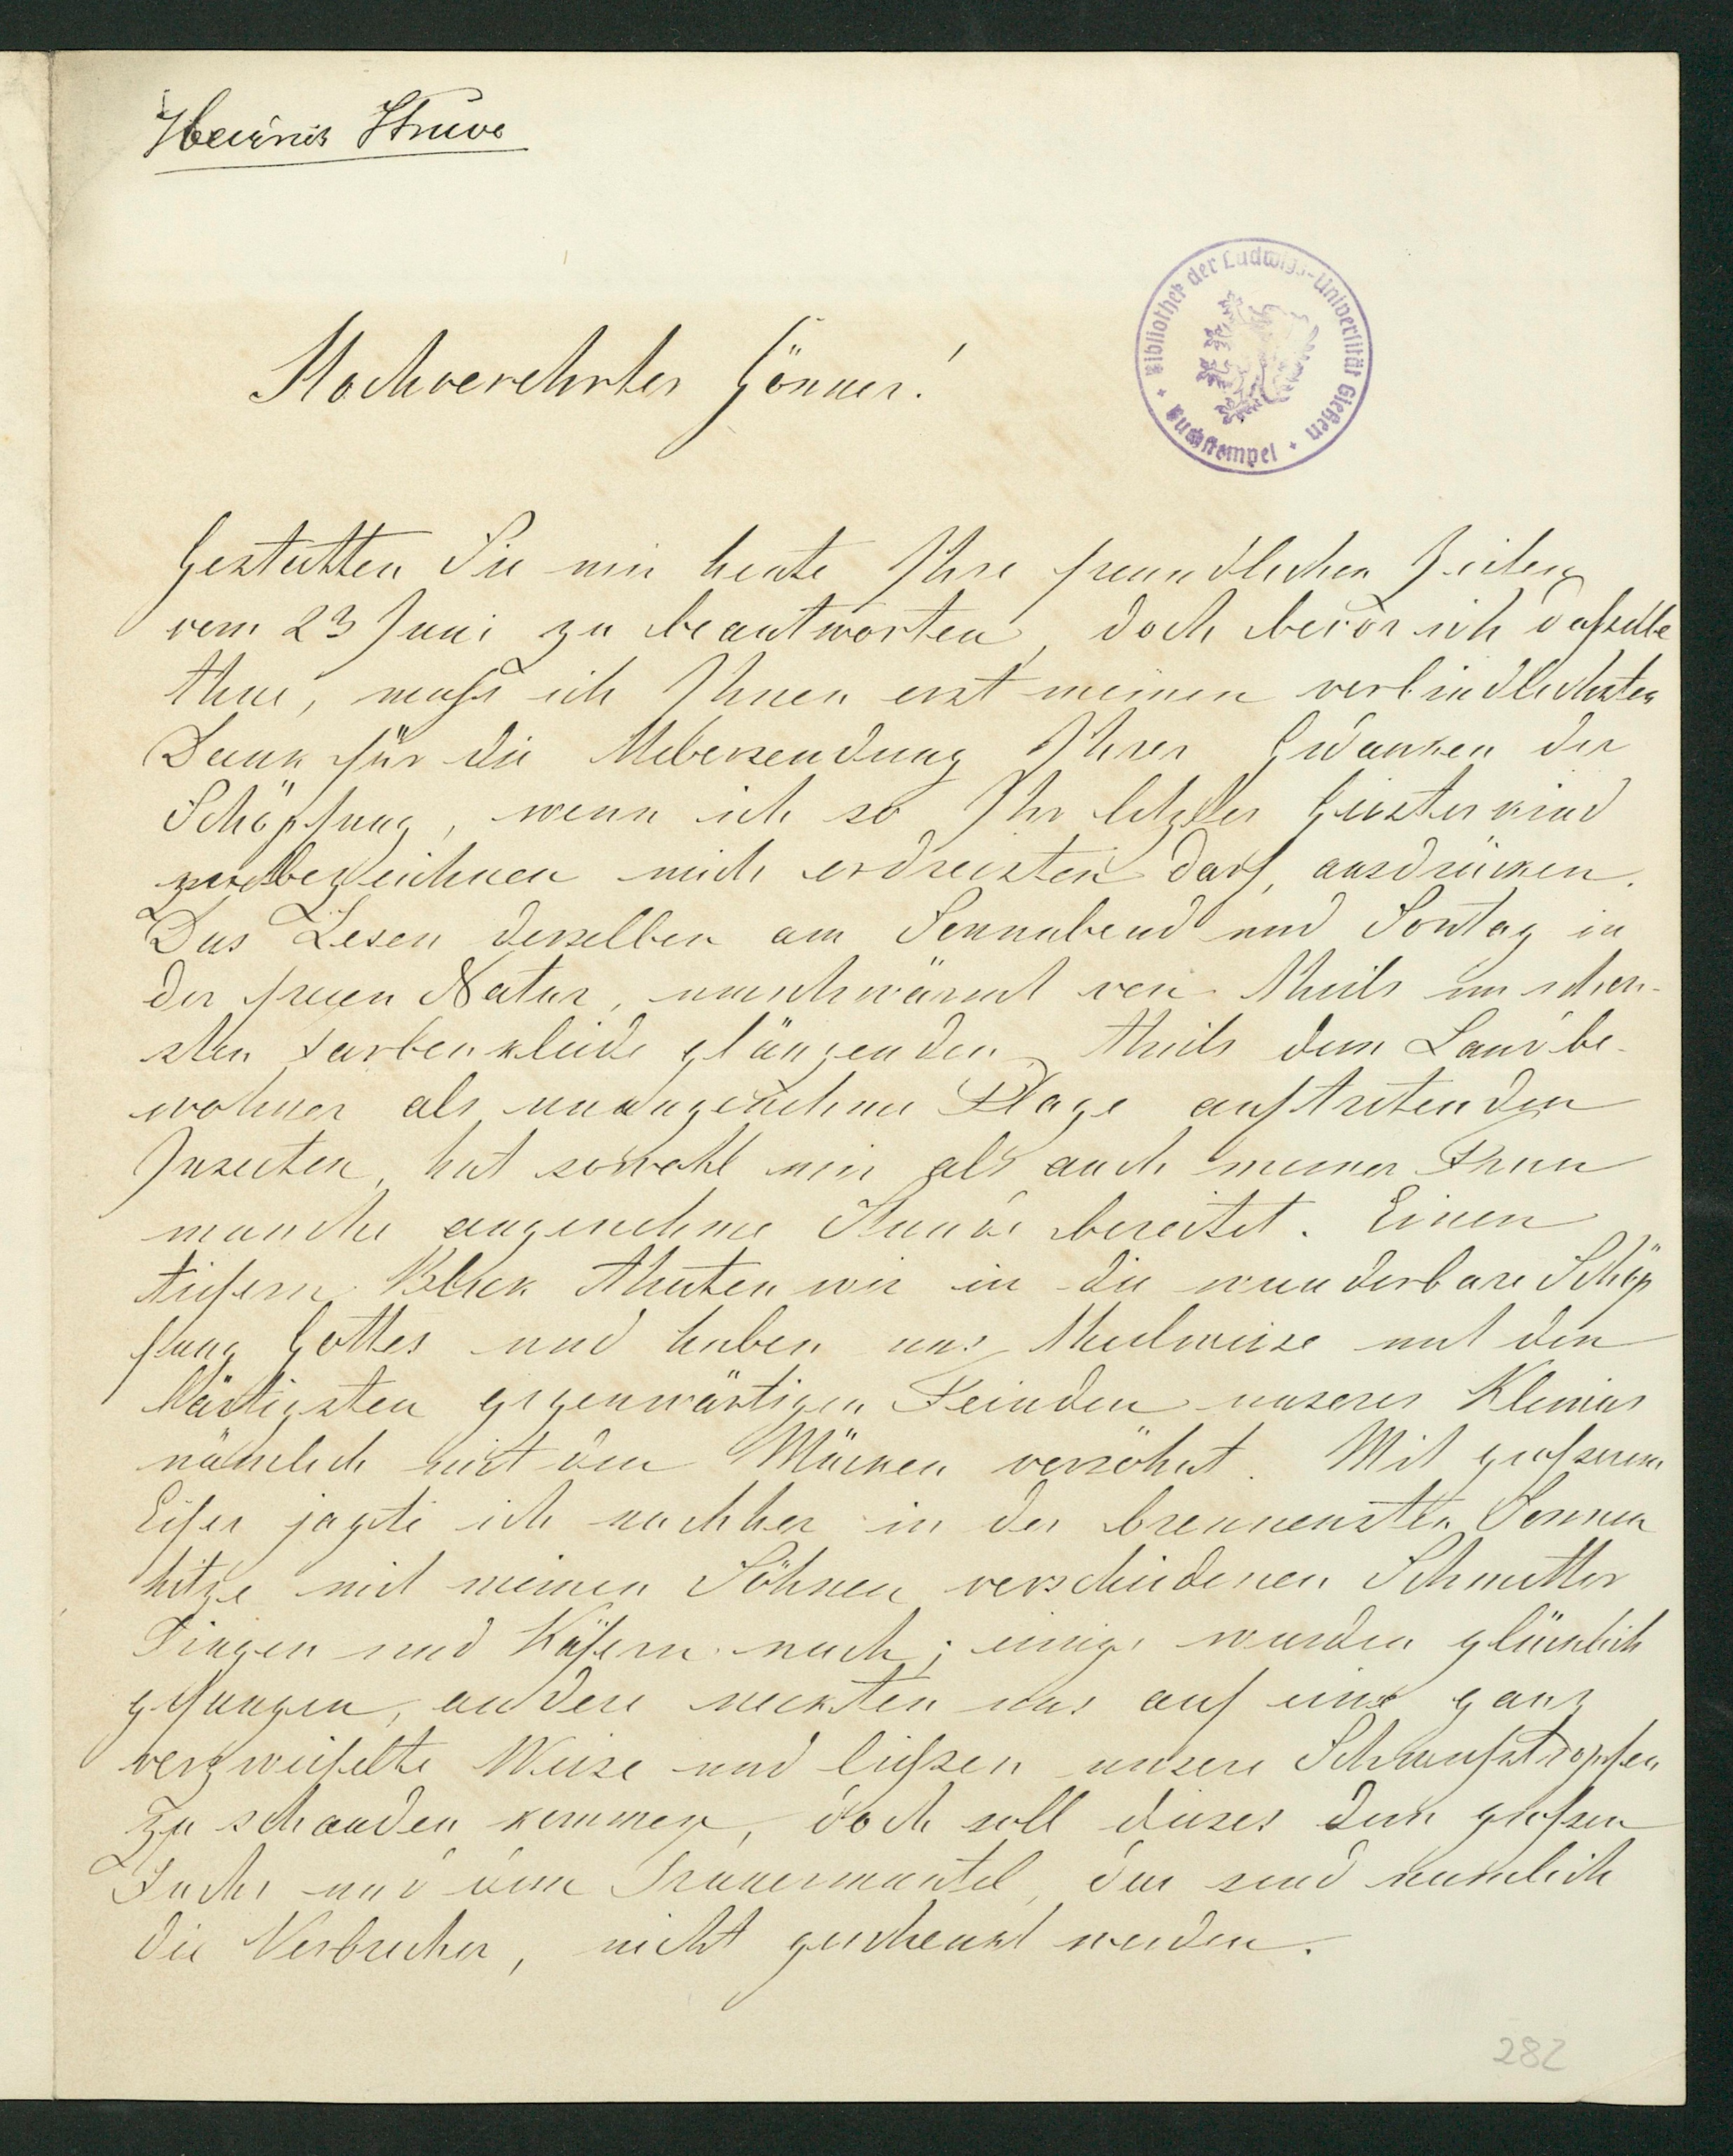 Heinrich Struve
Bibliothek der Ludwigs-Universität Gießen
Buchstempel
Hochverehrter Gönner!
Gestatten Sie mir heute Ihre freundlichen Zeilen
vom 23 Juni zu beantworten, doch bevor ich dasselbe
thue, muss ich Ihnen erst meinen verbindlichsten
Dank für die Uebersendung Ihrer Gedanken der
Schöpfung, wenn ich so Ihr letztes Geisteskind
zu bezeichnen mich erdreisten darf, ausdrücken.
Das Lesen derselben am Sonnabend und Sontag in
der freien Natur, umschwärmt von theils im schön-
sten Farbenkleide glänzenden, theils dem Landbe-
wohner als unangenehme Plage auftretenden
Insecten, hat sowohl mir als auch meiner Frau
manche angenehme Stunde bereitet. Einen
tiefern Blick thaten wir in die wunderbare Schöp
fung Gottes und haben uns theilweise mit den
lästigsten gegenwärtigen Feinden unseres Klimas
nämlich mit den Mücken versöhnt. Mit grossem
Eifer jagte ich nachher in der brennensten Sonnen
hitze mit meinen Söhnen verschiedenen Schmetter
lingen und Käfern nach; einige wurden glücklich
gefangen, andere neckten uns auf eine ganz
verzweifelte Weise und liessen unsere Schweisstropfen
zu schanden kommen, doch soll dieses dem grossen
Fuchs und dem Trauermantel, das sind nämlich
die Verbrecher, nicht geschenkt werden.
282